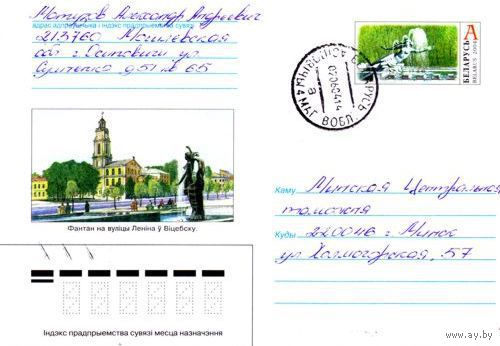 Мотуров Александр Андреевич
адрас адпраўшчыка і індэкс прадпрыемства сувязі
213760 Могилевская
обл г. Осиповичи ул
Сумченко д 51 кв 65
БЕЛАРУСЬ A
BELARUS 2004
020604-14
В ВОБЛ.
Фантан на вуліцы Леніна ў Віцебску.
Каму Минская Центральная
таможня
Куды 220046 г Минск
ул Холмогорская, 57
Індэкс прадпрыемства сувязі месца назначэння
www.ay.by